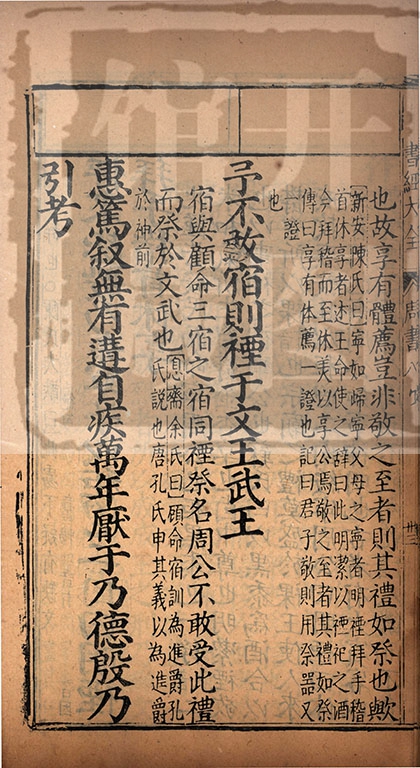 也故享有體薦豈非敬之至者則其禮如祭也歟
新安陳氏曰寧如歸寧父母之寧者明禋拜手稽
首休享者述王命使之辭曰此明潔以禋祀之酒
今拜稽而至休美以享公焉敬之至者其禮如祭
傳曰享有体薦一證也記曰君子敬則用祭器又
一證
也
予不敢宿則禋于文王武王
宿與顧命三宿之宿同禋祭名周公不敢受此禮
而祭於文武也
息齋余氏曰顧命宿訓為進爵孔
氏說也唐孔氏申其義以為進爵
於神前
惠篤叙無有遘自疾萬年厭于乃德殷乃
引考
書經大全
周書
卅三